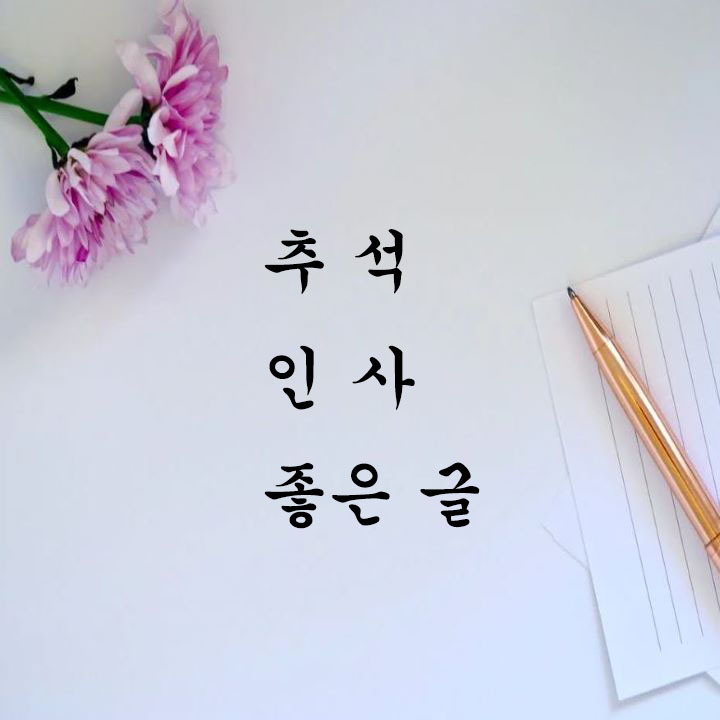 추 석
인 사
좋은 글